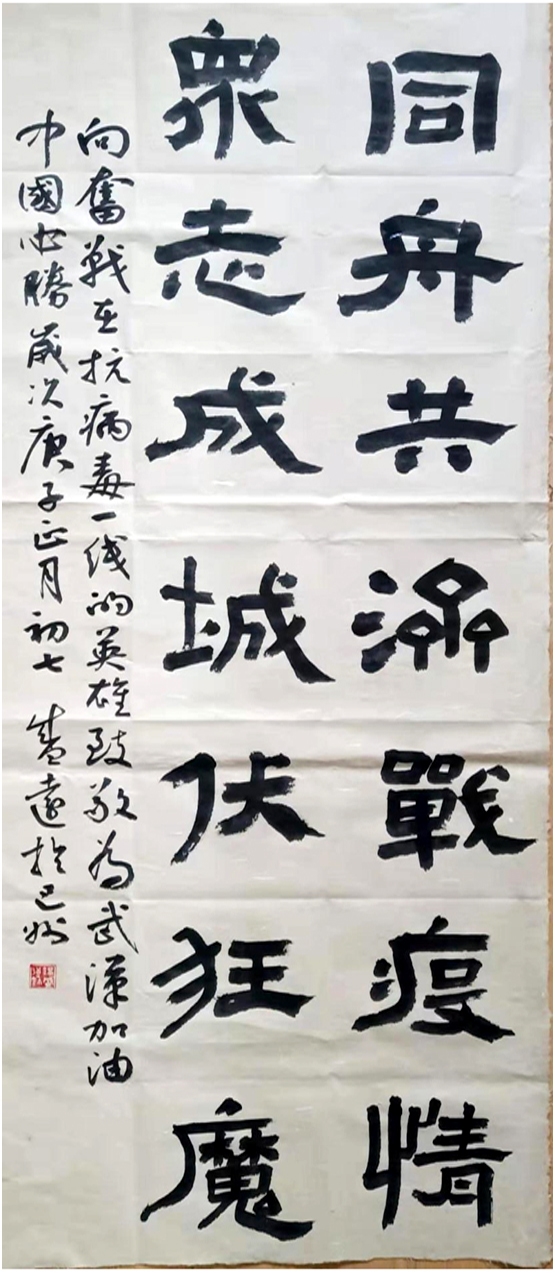 同舟共濟戰疫情
衆志成城伏狂魔
向奮戰在抗病毒一线的英雄致敬为武漢加油
中國必勝歲次庚子正月初七 遠於巴州